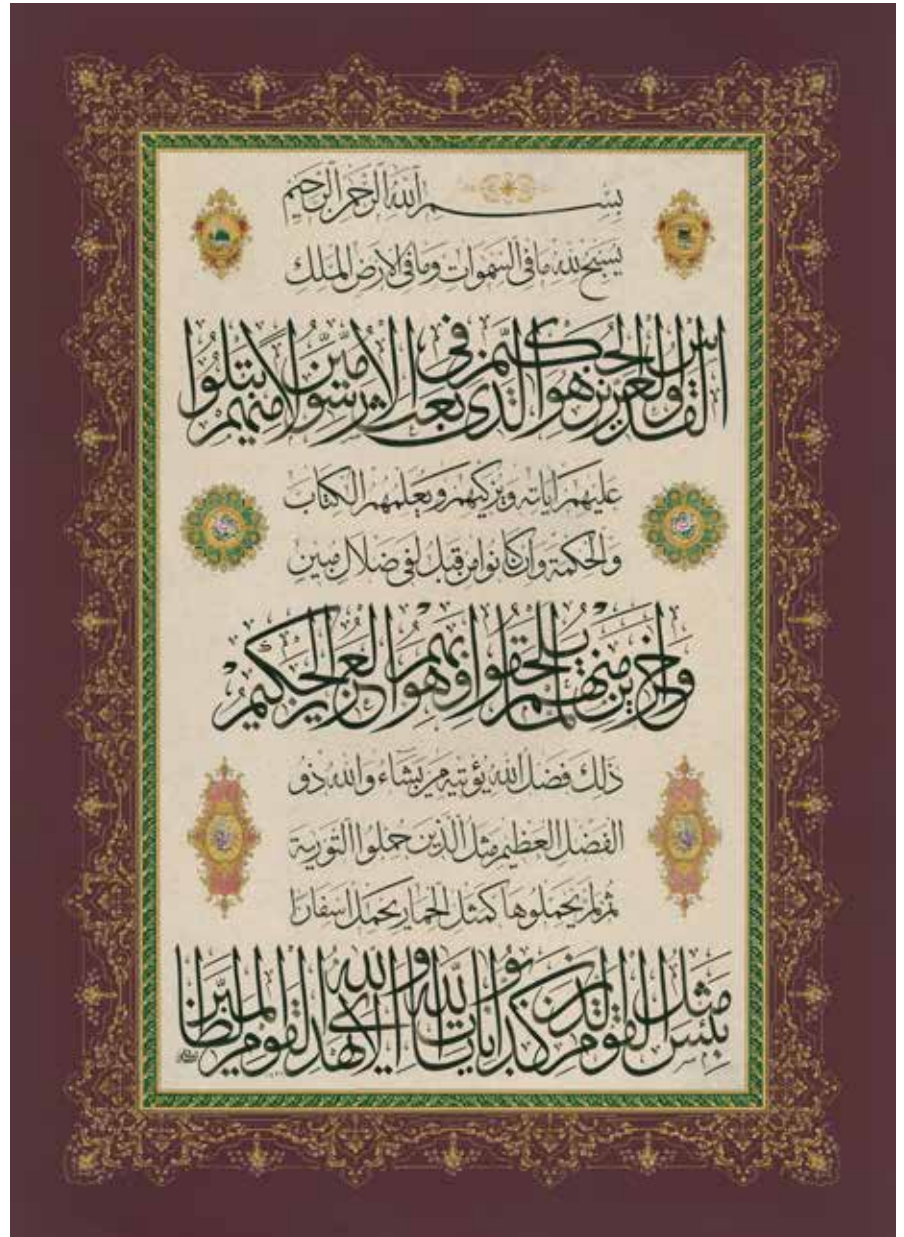 بِسْمِ اللهِ الرَّحْمٰنِ الرَّحِيمِ
يُسَبِّحُ لِلّٰهِ مَا فِي السَّمٰوَاتِ وَمَا فِي الْاَرْضِ الْمَلِكِ
الْقُدُّوسِ الْعَزِيزِ الْحَكِيمِ هُوَ الَّذِي بَعَثَ فِي الْاُمِّيِّنَ رَسُولًا مِنْهُمْ يَتْلُوا
عَلَيْهِمْ اٰيَاتِهِ وَيُزَكِّيهِمْ وَيُعَلِّمُهُمُ الْكِتَابَ
وَالْحِكْمَةَ وَاِنْ كَانُوا مِنْ قَبْلُ لَفِي ضَلَالٍ مُبِينٍ
وَاٰخَرِينَ مِنْهُمْ لَمَّا يَلْحَقُوا بِهِمْ وَهُوَ الْعَزِيزُ الْحَكِيمُ
ذٰلِكَ فَضْلُ اللهِ يُؤْتِيهِ مَنْ يَشَٓاءُ وَاللهُ ذُو
الْفَضْلِ الْعَظِيمِ مَثَلُ الَّذِينَ حُمِّلُوا التَّوْرٰيةَ
ثُمَّ لَمْ يَحْمِلُوهَا كَمَثَلِ الْحِمَارِ يَحْمِلُ اَسْفَارًا
بِئْسَ مَثَلُ الْقَوْمِ الَّذِينَ كَذَّبُوا بِاٰيَاتِ اللهِ وَاللهُ لَا يَهْدِي الْقَوْمَ الظَّالِمِينَ